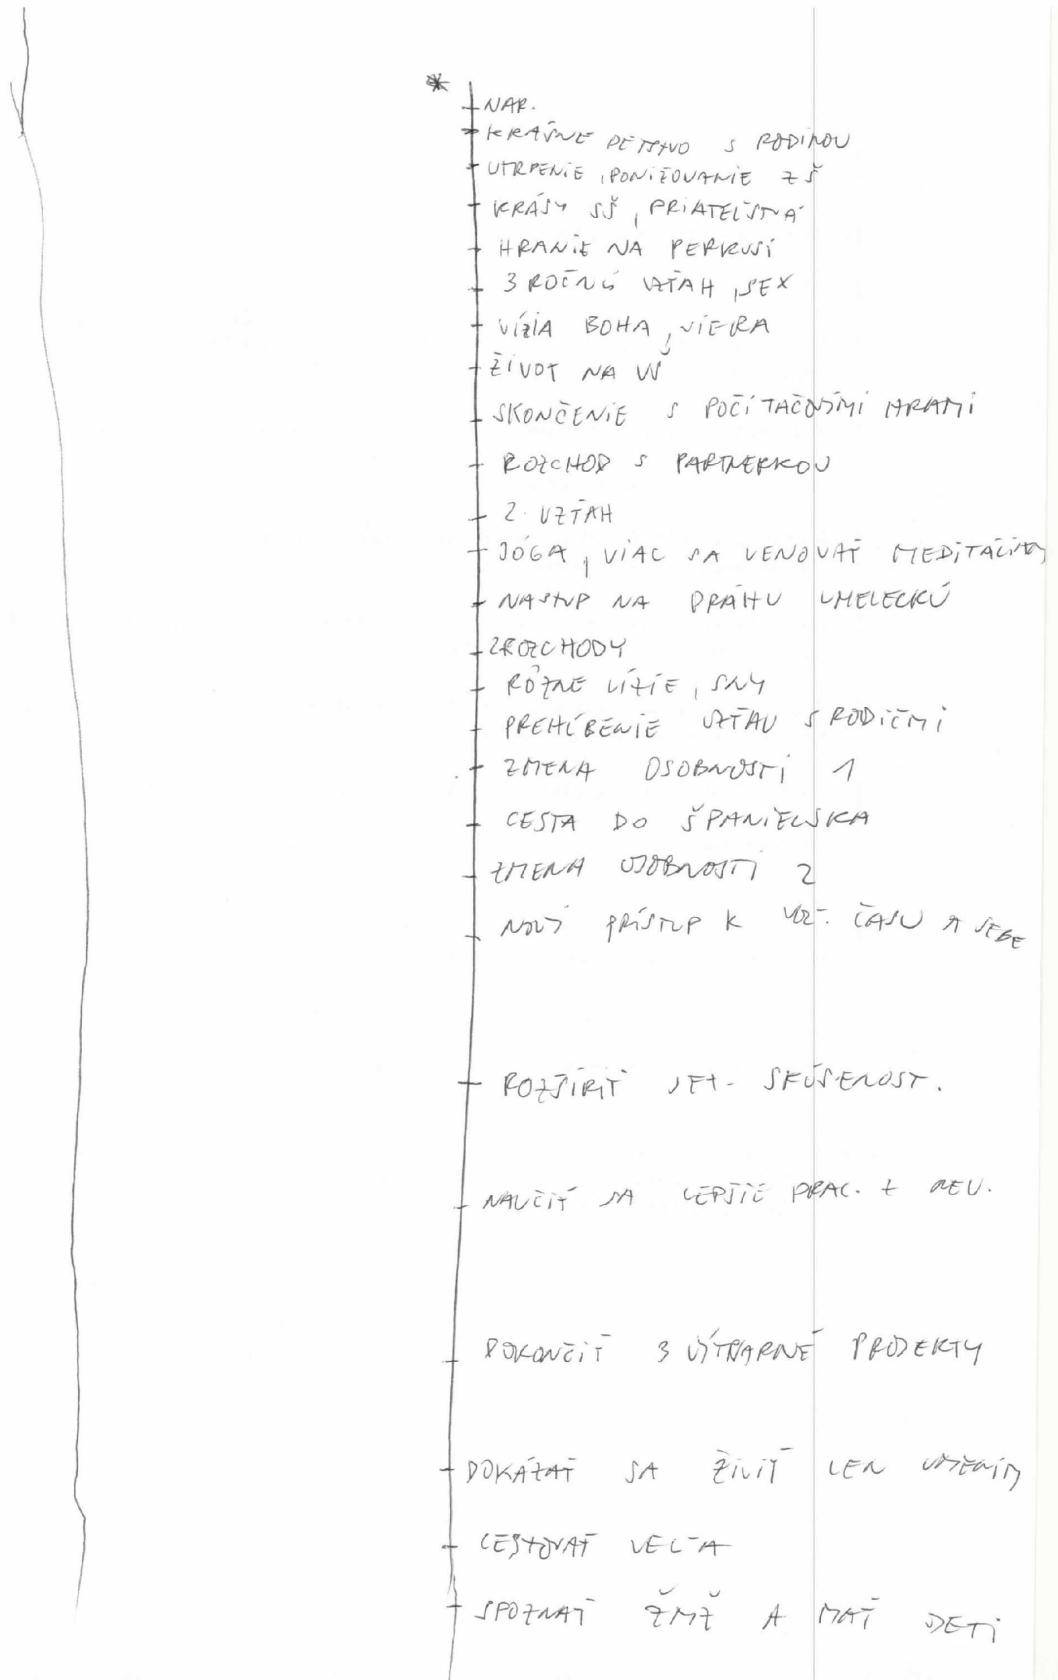 *
NAR.
KRÁSNE DETSTVO S RODINOU
UTRPENIE, PONIŽOVANIE ZŠ
KRÁSY SŠ, PRIATEĽSTVÁ
HRANIE NA PERKUSÍ
3 ROČNÝ VZŤAH, SEX
VÍZIA BOHA, VIERA
ŽIVOT NA VŠ
SKONČENIE S POČÍTAČOVÝMI HRAMI
ROZCHOD S PARTNERKOU
2. VZŤAH
JÓGA, VIAC SA VENOVAŤ MEDITÁCIAM
NASTUP NA DRÁHU UMELECKÚ
2 ROZCHODY
RÔZNE VÍZIE, SNY
PREHĹBENIE VZŤAU S RODIČMI
ZMENA OSOBNOSTI 1
CESTA DO ŠPANIELSKA
ZMENA OSOBNOSTI 2
NOVÝ PRÍSTUP K ČASU A SEBE
ROZŠÍRIŤ SEX. SKÚSENOST.
NAUČIŤ SA LEPŠIE PRAC. Z
DOKONČIŤ 3 VÝTVARNÉ PROJEKTY
DOKÁZAŤ SA ŽIVIŤ LEN UMENÍM
CESTOVAŤ VEĽA
SPOZNAŤ ŽMŽ A MAŤ DETI